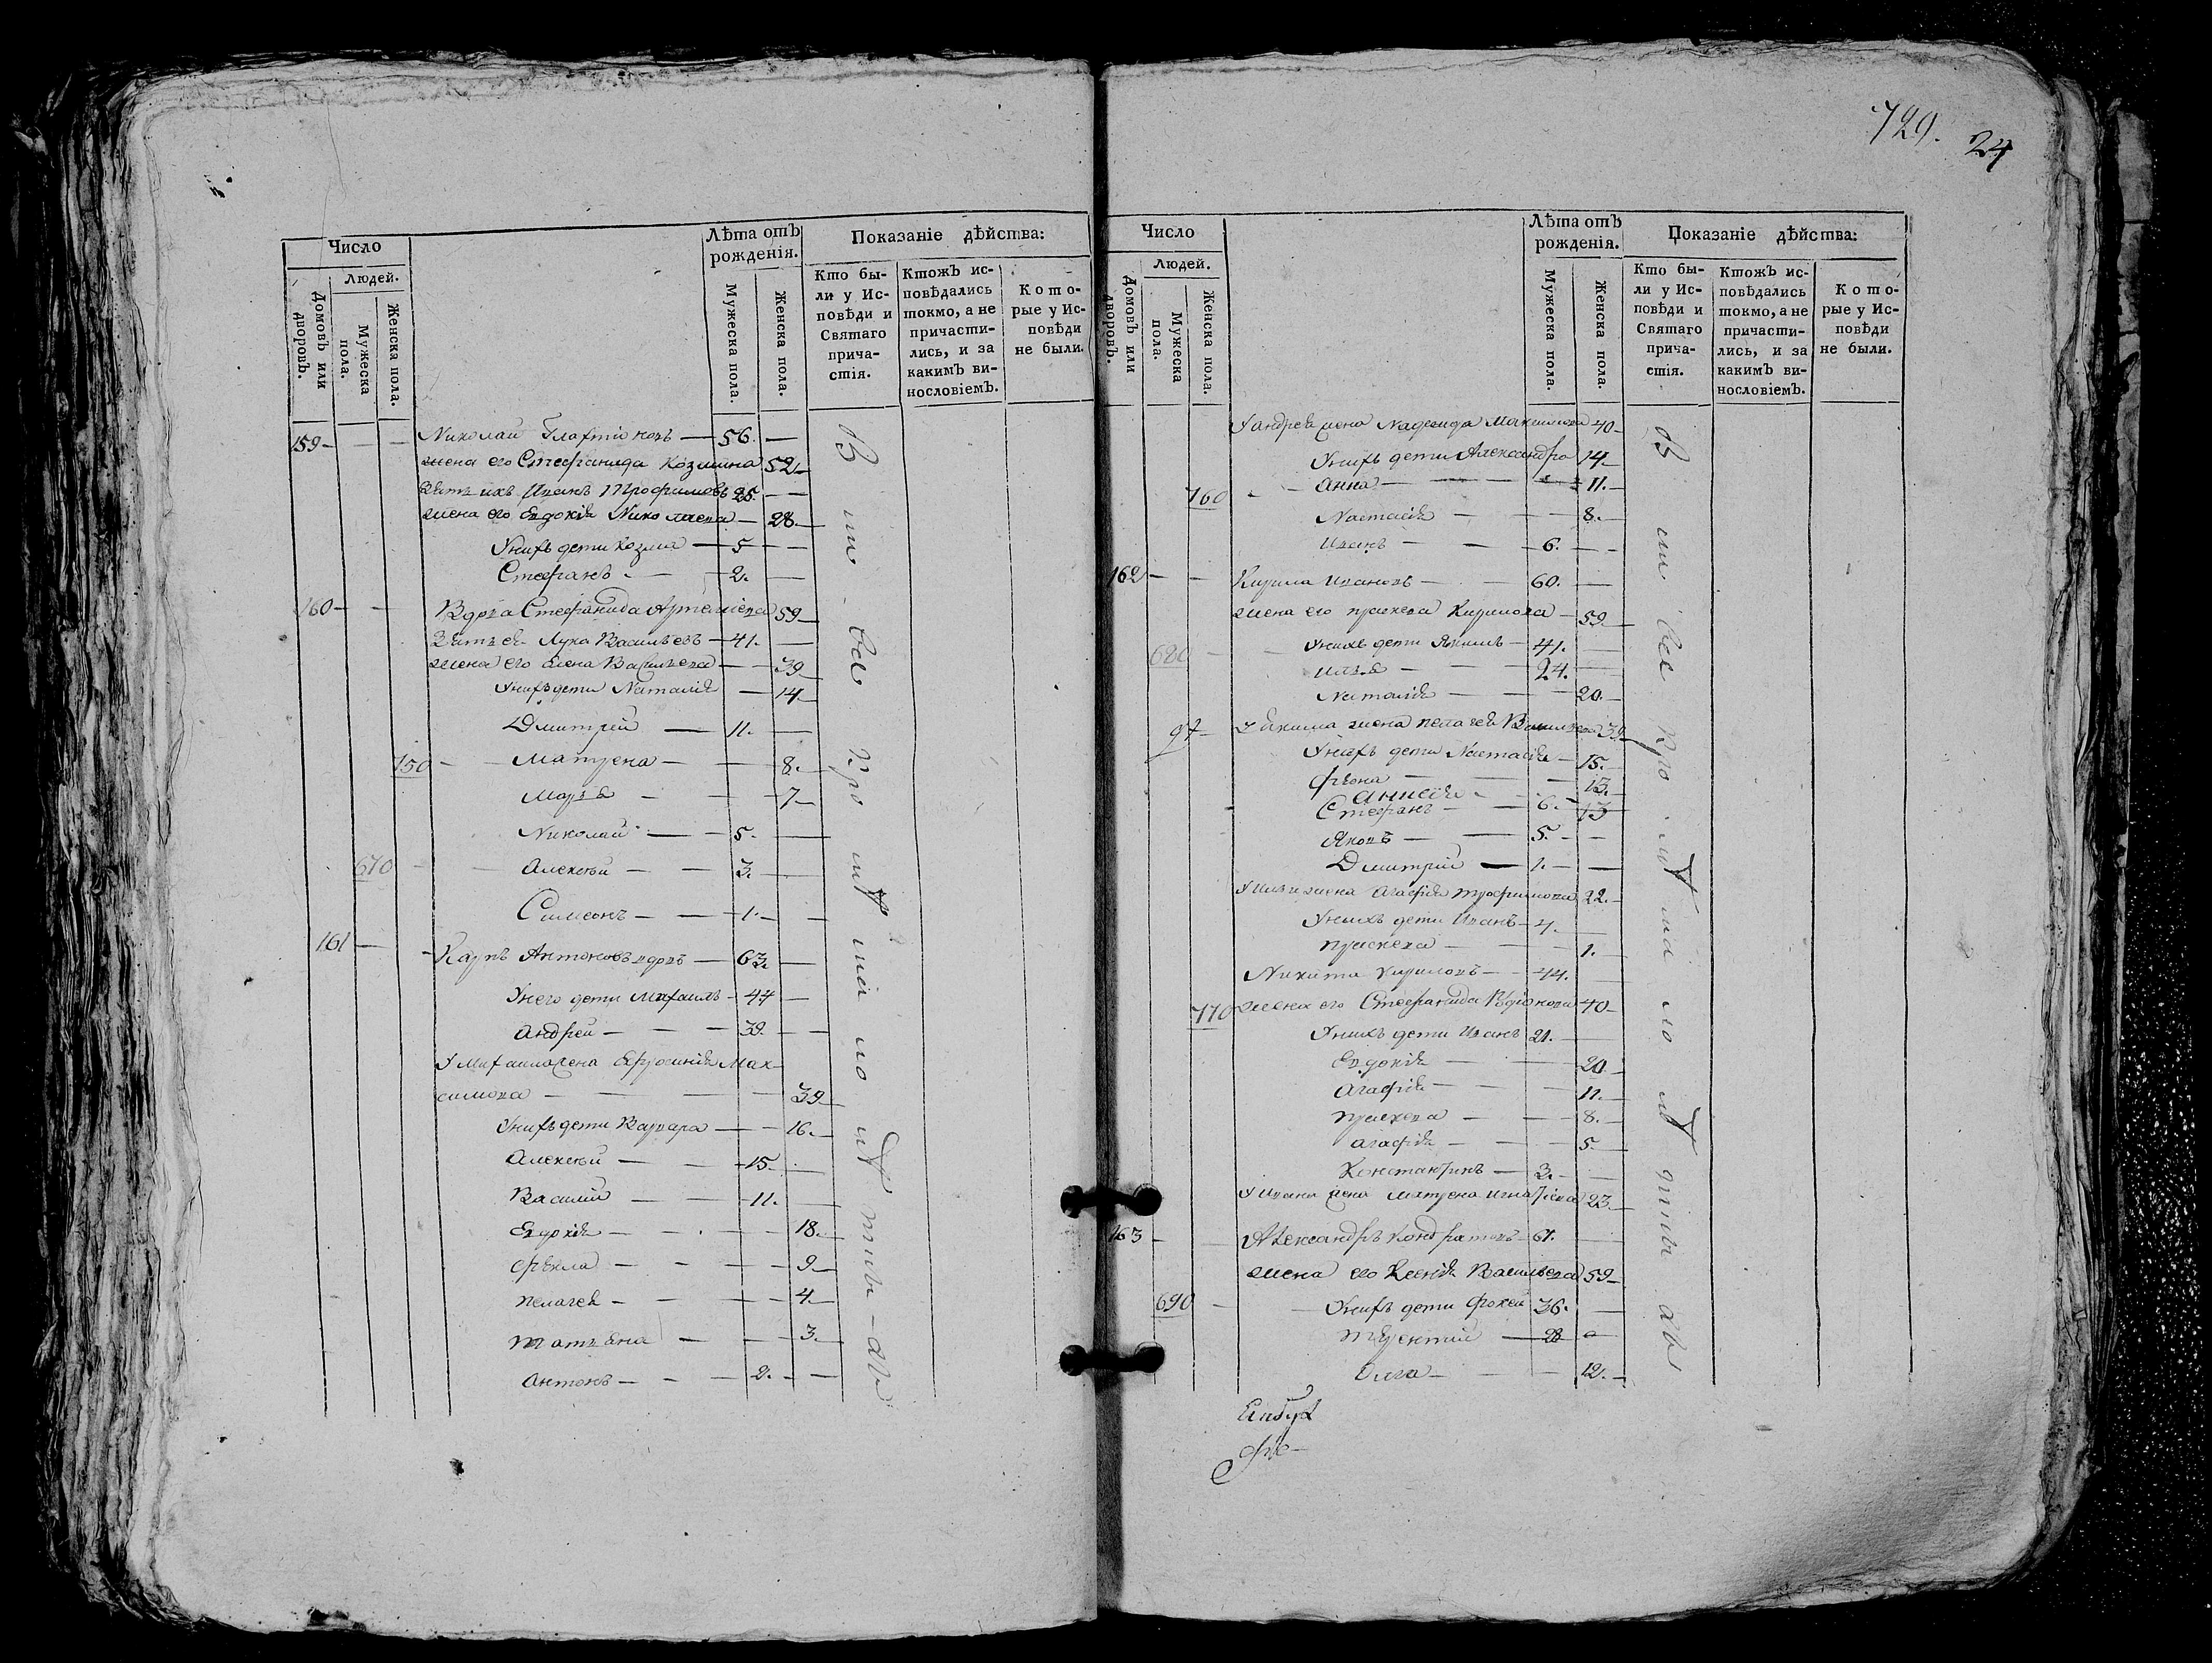 729. 24
Число
Людей.
Домовъ или дворовъ.
Мужеска пола.
Женска пола.
Лѣта отъ рожденія.
Мужеска пола.
Женска пола.
Показаніе дѣйства:
Кто бы-
ли у Ис-
повѣди и
Святаго
прича-
стія.
Ктожъ ис-
повѣдались
токмо, а не
причасти-
лись, и за
какимъ ви-
нословіемъ.
Кото-
рые у Ис-
повѣди
не были.
159 — Николай — 56. —
жена его Стефанида Козмина 52
Зять ихъ Иванъ Трофимовъ 25. —
жена его Евдокія Николаева — 28.
У нихъ дети Козма — 5 —
Стефанъ — 2. —
160 — Вдова Стефанида Артемiева 59
Зять ея Лука Васильевъ — 41. —
жена его Елена Васильева — 39
У нихъ дети Наталія — 14
Дмитрей — 11. —
150 — Матрена — 8.
Марья — 7
Николай — 5. —
670 — Алексѣй — 3. —
Симеонъ — 1. —
161 — Карпъ Антоновъ вдовъ — 63. —
У него дети Михаилъ — 44 —
Андрей — 39. —
У Михаила жена Ефросинія Мак-
симова — 39
У нихъ дети Варвара — 16.
Алексѣй — 15. —
Василій — 11. —
Евдокія — 18.
Фекла — 9
Пелагея — 4
Татьяна — 3.
Антонъ — 2. —
Число
Людей.
Домовъ или дворовъ.
Мужеска пола.
Женска пола.
Лѣта отъ рожденія.
Мужеска пола.
Женска пола.
Показаніе дѣйства:
Кто бы-
ли у Ис-
повѣди и
Святаго
прича-
стія.
Ктожъ ис-
повѣдались
токмо, а не
причасти-
лись, и за
какимъ ви-
нословіемъ.
Кото-
рые у Ис-
повѣди
не были.
У андрея жена Надежда Максимова 40
У нихъ дети Александра 14
160 — Анна — 11.
Настасія — 8.
Иванъ — 6. —
162 — Кирила Ивановъ — 60. —
жена его прасковья Кирилова — 59.
680 — У нихъ дети Якимъ — 41. —
Илья — 24. —
Наталія — 20.
У Якима жена пелагея Васильева 39
У нихъ дети Настасія — 15.
13.
Анисія — 13
Стефанъ — 6. —
Яковъ — 5. —
Дмитрій — 1. —
У Ильи жена Агафія трофимова 22.
У нихъ дети Иванъ — 4. —
прасковья — 1.
Никита Кириловъ — 44. —
170 жена его Стефанида 40
У нихъ дети Иванъ 21. —
Евдокія — 20
Агафія — 11.
прасковья — 8.
агафія — 5
Константинъ — 3. —
У Ивана жена Матрена игнатіева 23.
163 — Александръ Кондратовъ — 61. —
жена его Ксенія Васильева 59
690 — У нихъ дети Фокей 36. —
Терентий — 28 —
Олга — 12.